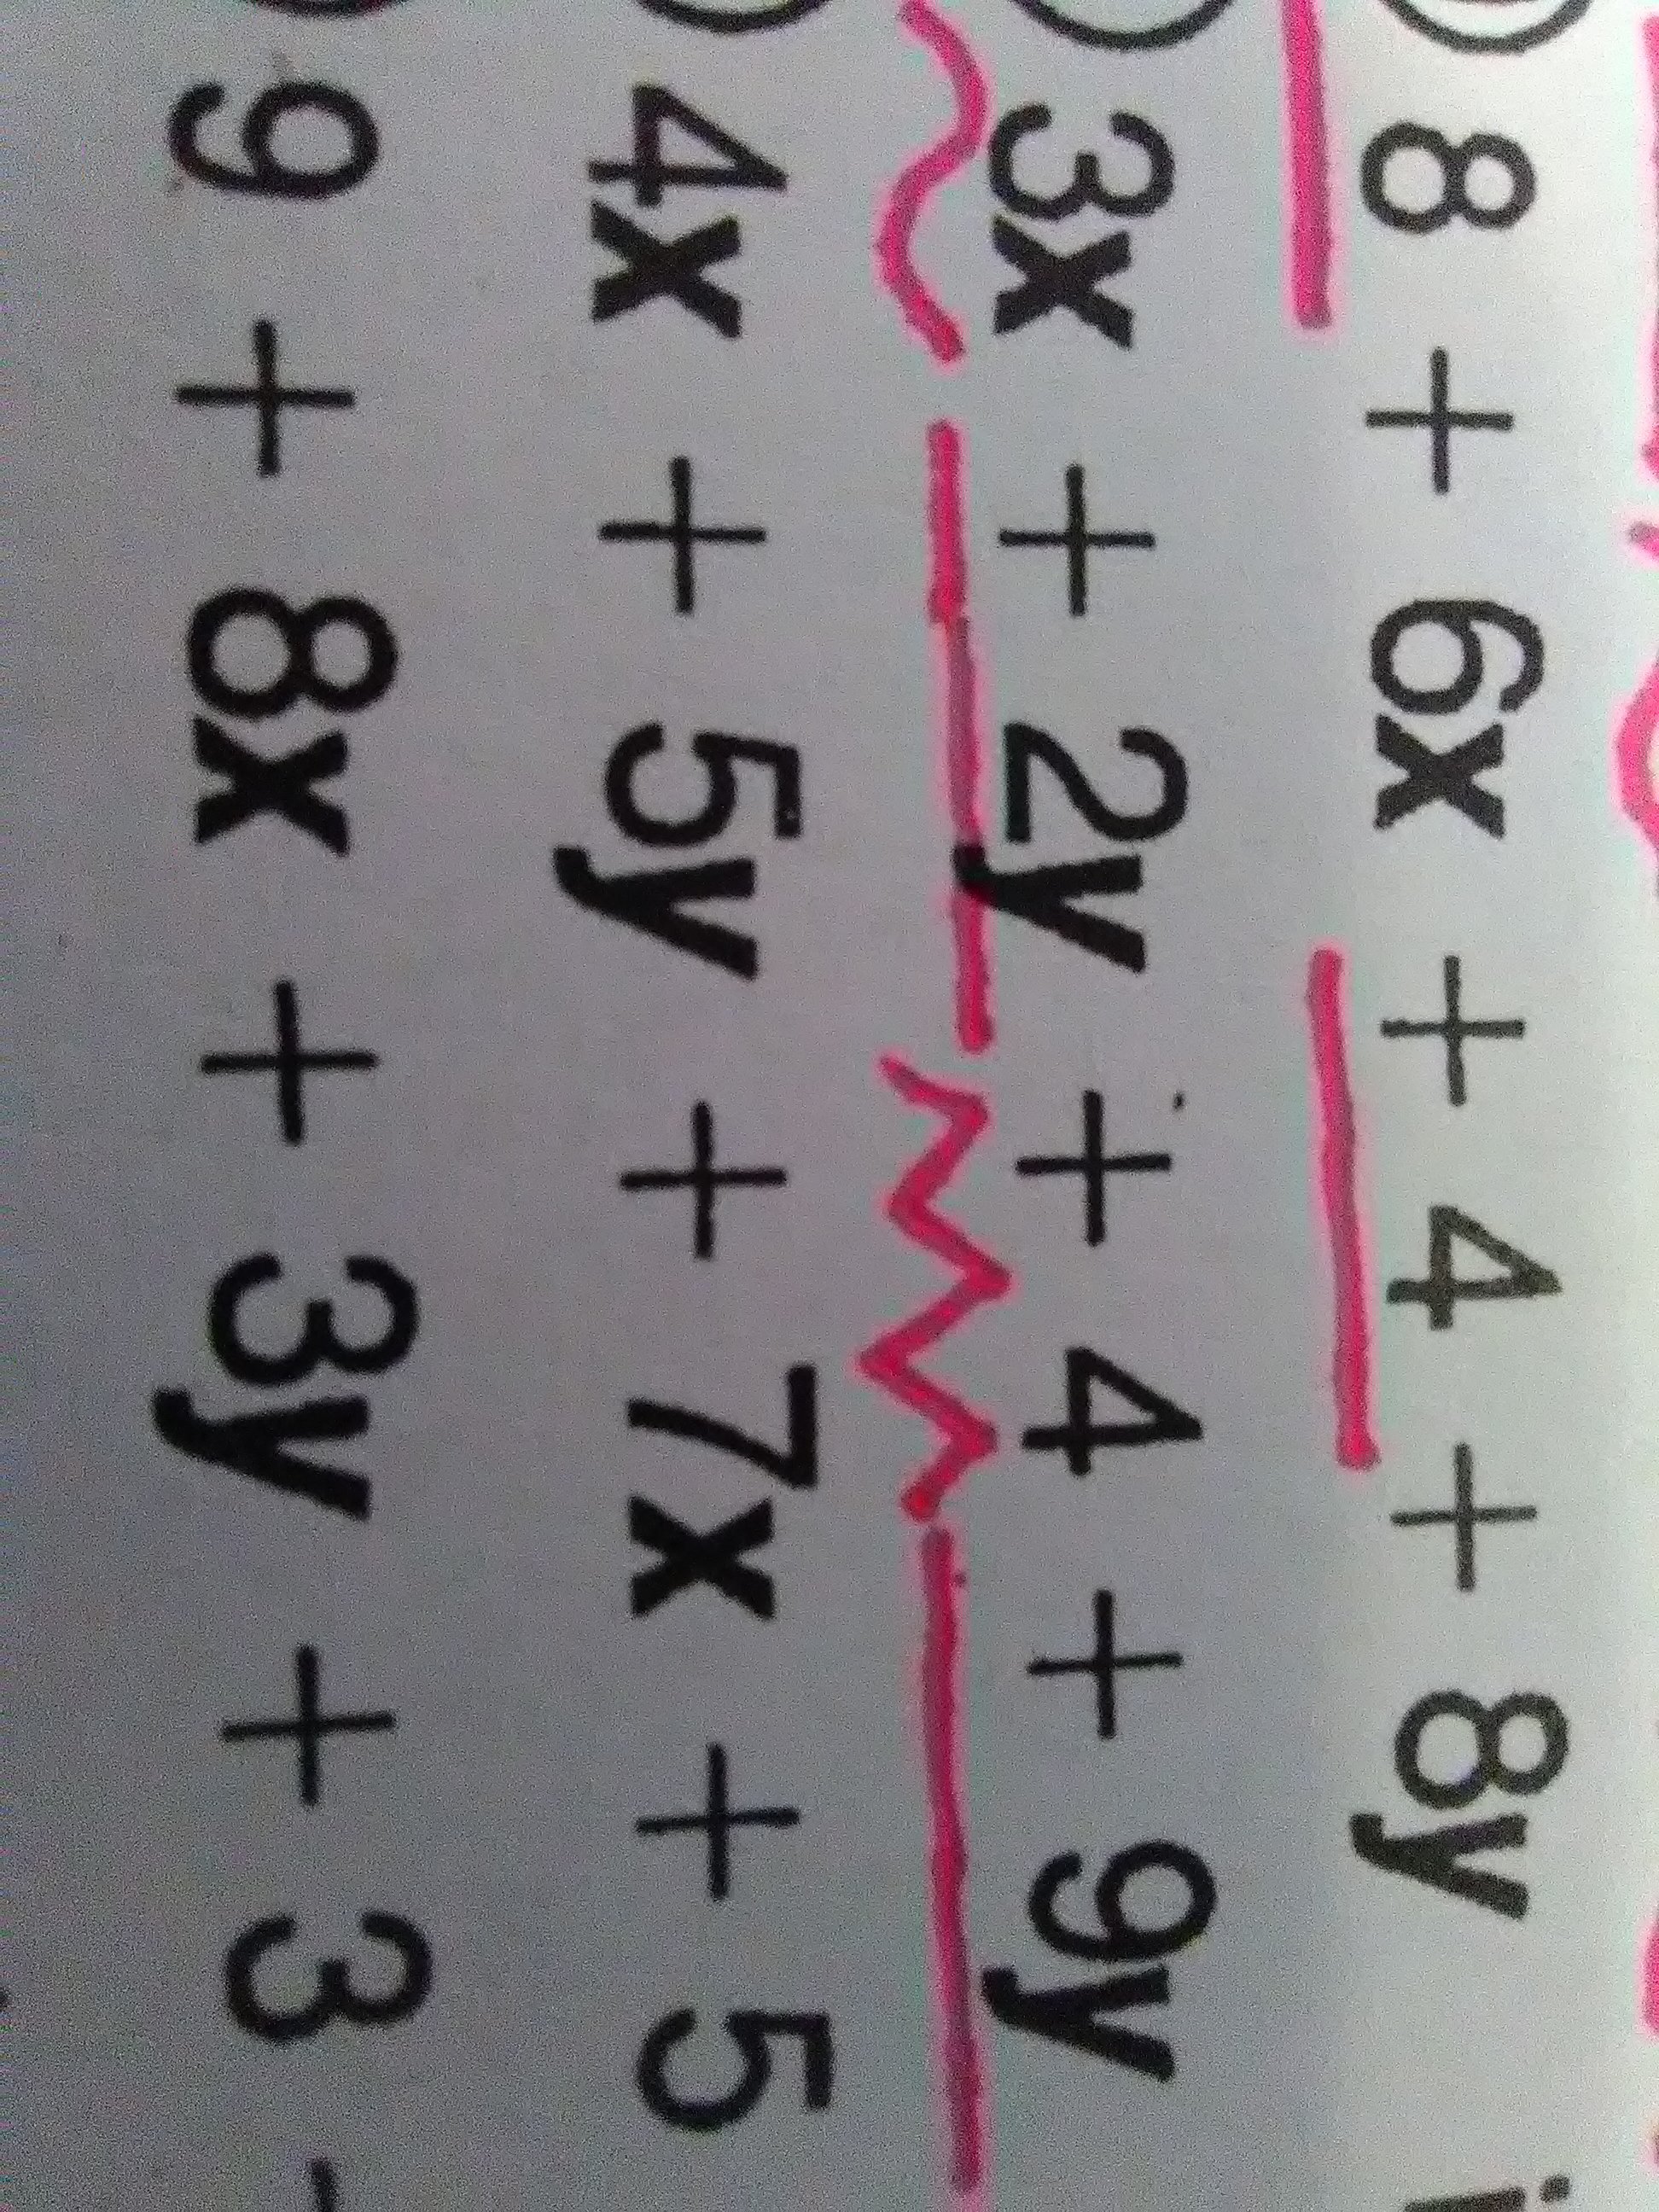 8 + 6x + 4 + 8y
3x + 2y + 4 + 9y
4x + 5y + 7x + 5
9 + 8x + 3y + 3